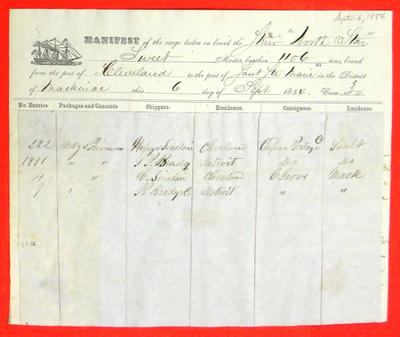 Sept. 6, 1854
MANIFEST of the cargo taken on board the Str "North Star"
Sweet Master, burthen 1106 tons, bound
from the port of Cleveland to the port of Saut Ste Marie in the District
of Mackinac this 6 day of Sept. 1854.
No. Entries Packages and Contents Shippers. Residence. Consignees. Residence.
222 Sinclair Cleveland Sault
1491 " " S. P. Brady Detroit Do Do
4 " " C. Sinclair Cleveland C Grove Mack
7 " " Detroit " "